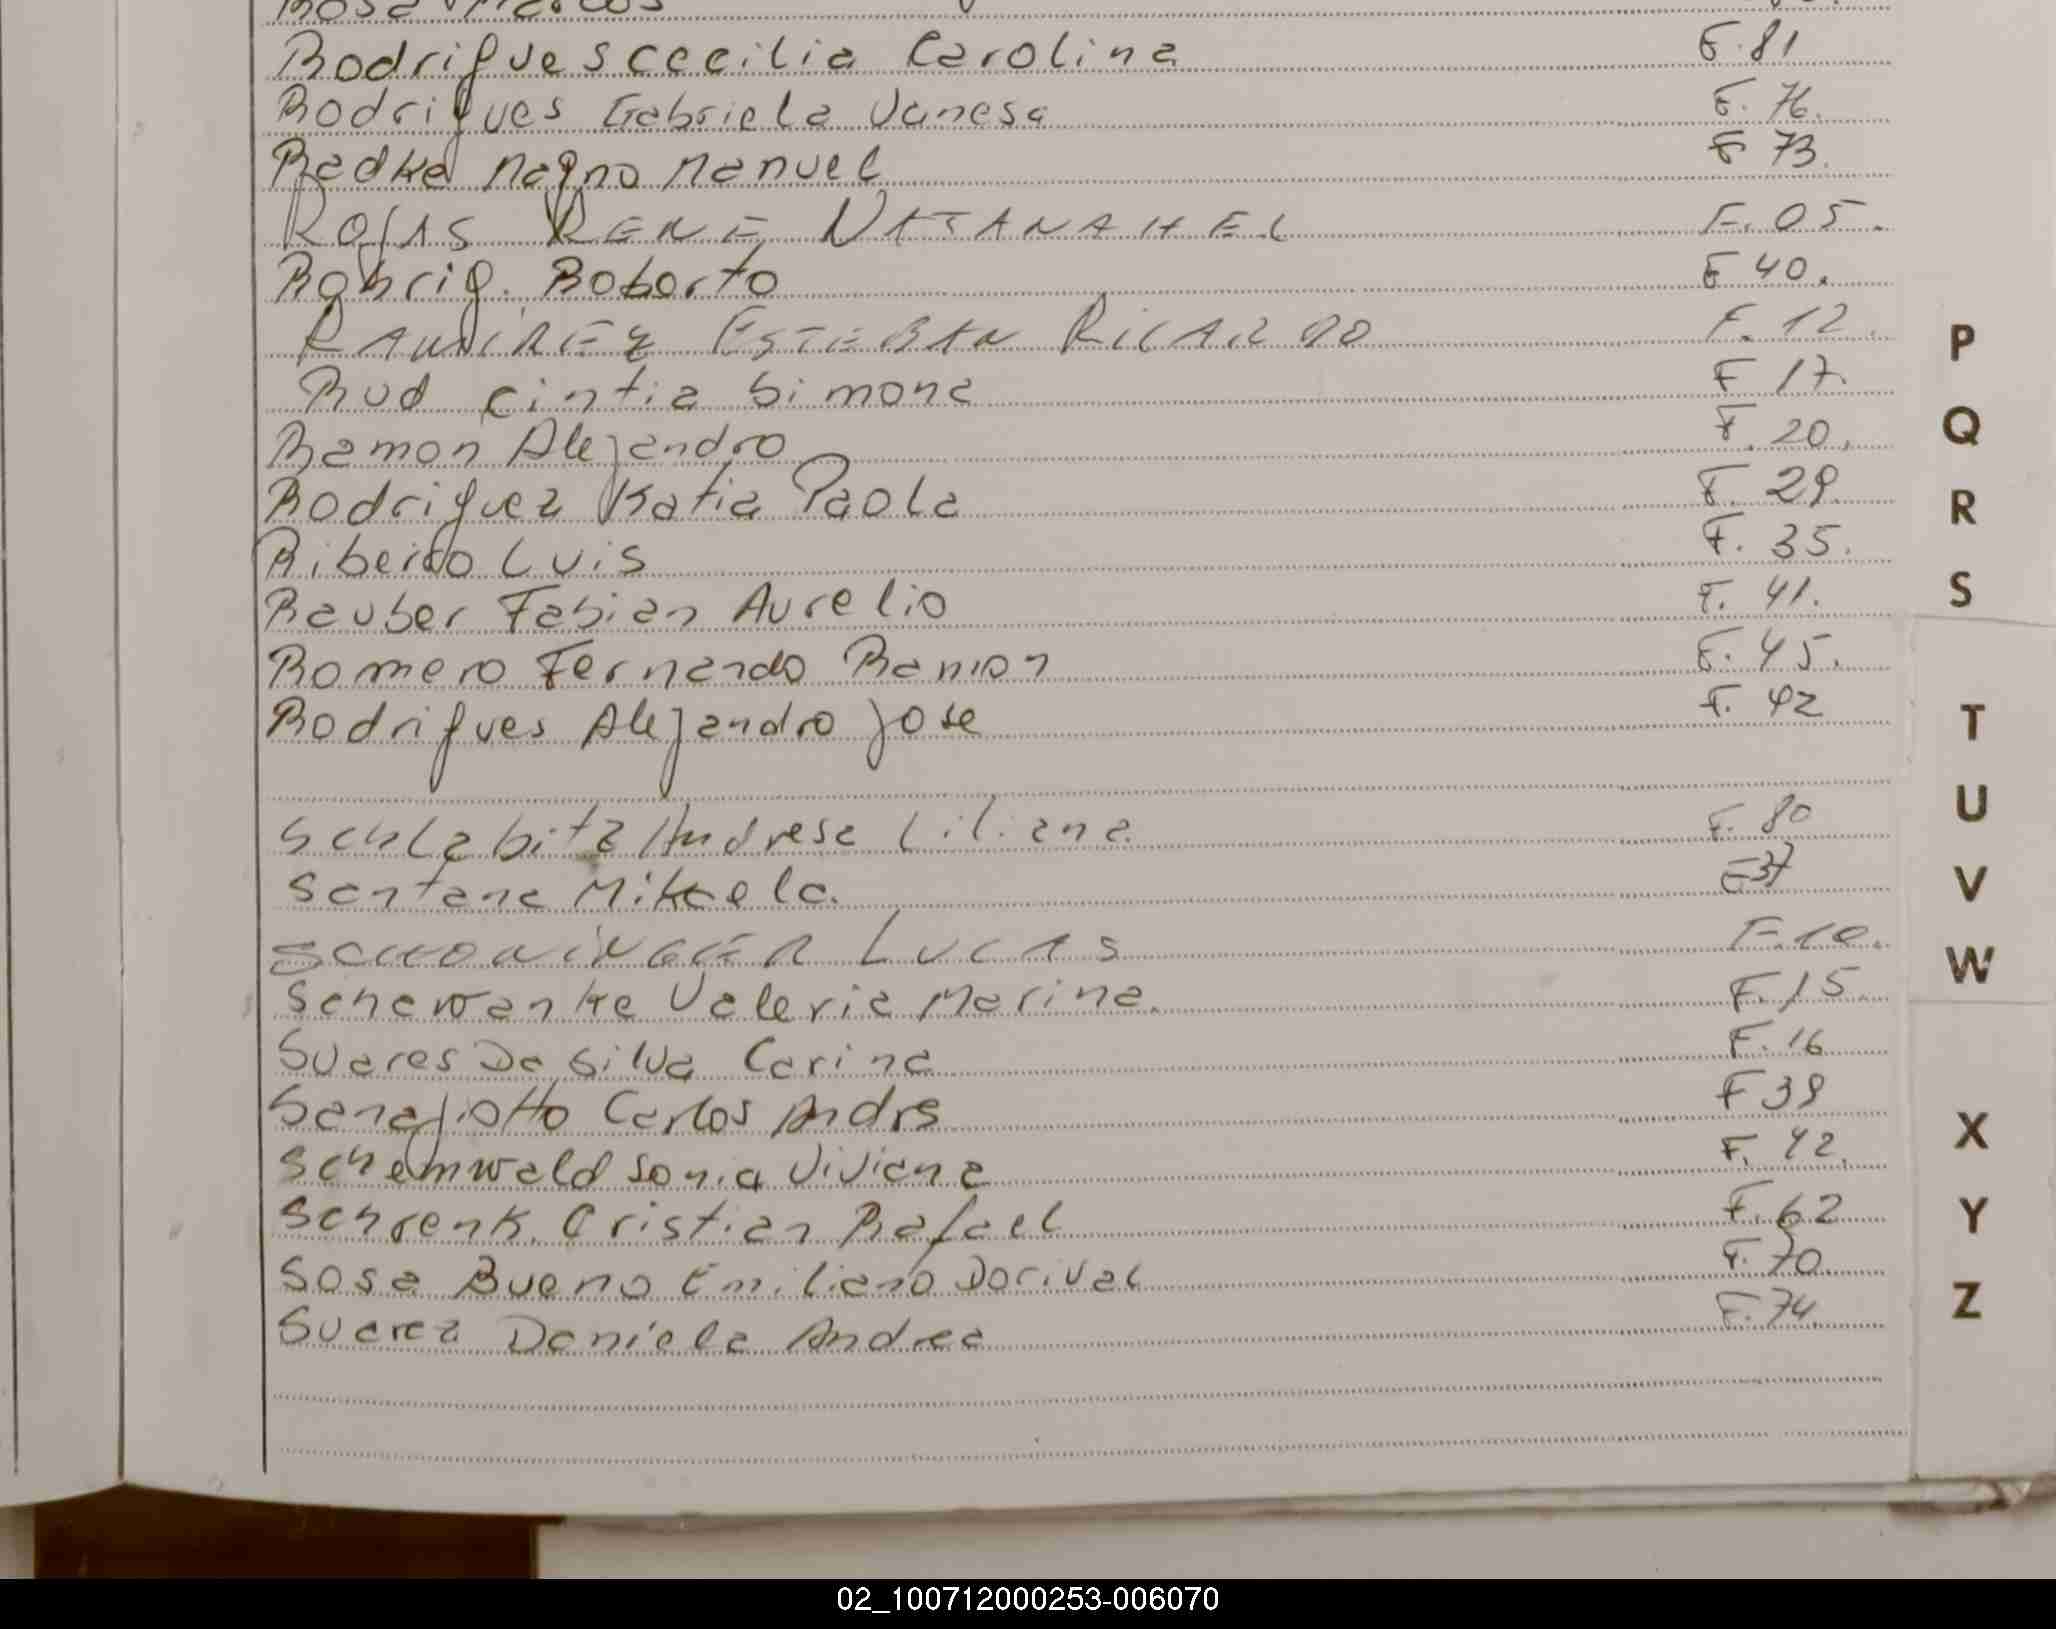 Rodrigues cecilia Carolina F. 81
Rodrigues Gabriela Vanesa F. 76.
Radke Magno Manuel F 73.
ROJAS RENE NATANAHEL F. 05.
Rohrig. Roberto F 40.
RAMIREZ ESTEBAN RICARDO F. 12.
Rud cintia Simone F 17.
Ramon Alejandro F. 20.
Rodriguez Katia Paola F. 29.
Ribeiro Luis F. 35.
Rauber Fabian Aurelio F. 41.
Romero Fernando Ramon F. 45.
Rodrigues Alejandro Jose F. 42
Schlabitz Andresa Liliana. F. 80
Santana Mikaela. F 37
SCHONINGER LUCAS F. 10.
Schewanke Valeria Marina. F. 15.
Suares Da Silva Carina F. 16
Sanagiotto Carlos Andrs F 39
Schemwald Sonia Viviana F. 42.
Schrenk. Cristian Rafael F. 62
Sosa Bueno Emiliano Dorival F. 70
Suarez Daniela Andrea F. 74.
P
Q
R
S
T
U
V
W
X
Y
Z
02_100712000253-006070